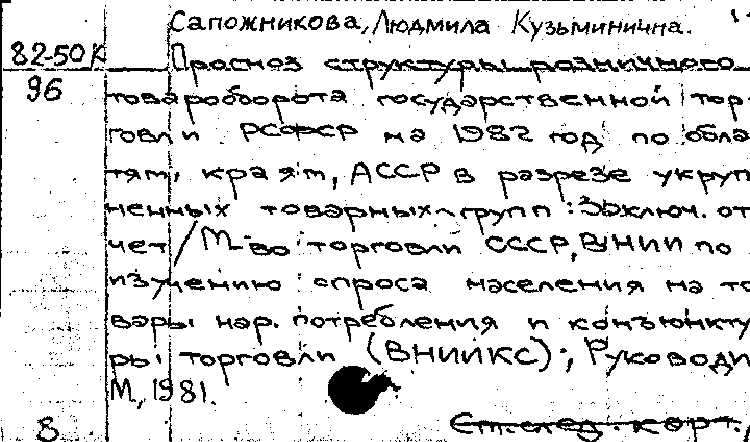 Сапожникова, Людмила Кузьминична.
82-50К Прогноз структуры розничного
96 товарооборота государственной тор-
говли РСФСР на 1982 год по обла
тям, краям, АССР в разрезе укруп
ненных товарных групп: Заключ. от
чет / М-во торговли СССР, ВНИИ по
изучению спроса населения на то
вары нар. потребления и конъюнкту
ры торговли (ВНИИКС); Руководи
М., 1981.
8 См. след. карт.